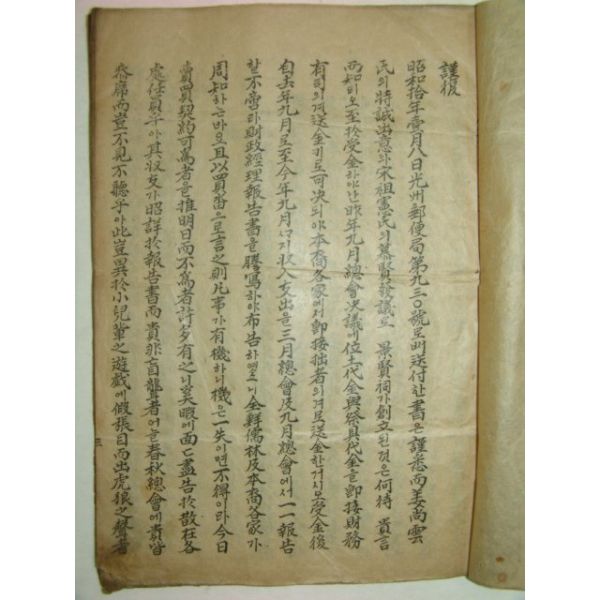 謹復
昭和拾年壹月八日光州郵便局第九三〇號로써送付한書은謹悉而姜尚雲
氏의特誠出意와宋祖憲氏의慕賢發議로 景賢祠가創立된것은何待 貴言
而知비오至於受金하야난昨年九月總會决議에位土代金與祭具代金을卽接財務
有司의게送金키로可决되야本裔各家에서卽接拙者의게로送金한거시모受金後
自去年九月로至今年九月收入支出을三月總會及九月總會에서一一報告
할不啻라財政經理報告書을謄寫하야布告하엿스니全鮮儒林及本裔各家가
周知하는바오且以買畓으로言之則凡事가有機하니機은一失이면不得이라今日
賣買契約可爲者을推明日而不爲者許多有之니奚暇에面面盡告於散在各
處任員乎아其狀文가昭詳於報告書而貴非盲聾者어늘春秋總會에貴皆
參席而豈不見不聽乎아此豈異於小兒輩之遊戱에假張目而出虎狼之聲者
三